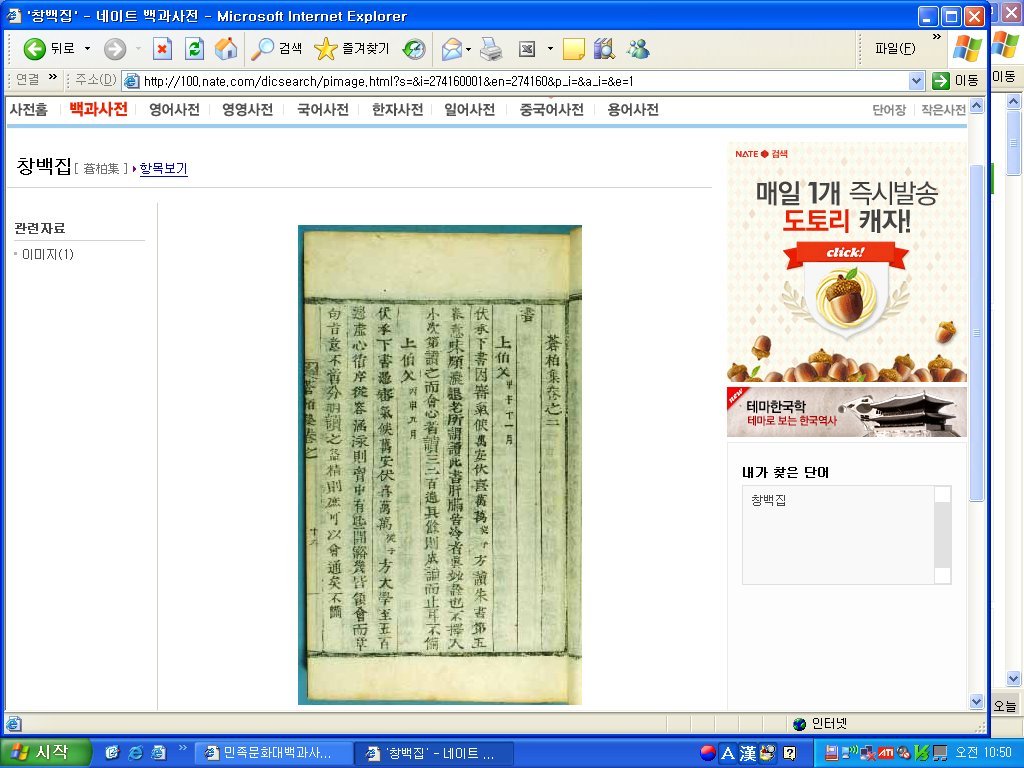 '창백집' - 네이트 백과사전 - Microsoft Internet Explorer
뒤로
검색
즐겨찾기
파일(F)
연결
주소(D)
http://100.nate.com/dicsearch/pimage.html?s=&i=274160001&en=274160&p_i=&a_i=&e=1
이동
이동
사전홈
백과사전
영어사전
영영사전
국어사전
한자사전
일어사전
중국어사전
용어사전
단어장
작은사전
창백집 [ 蒼柏集 ] 항목보기
관련자료
이미지(1)
蒼柏集卷之二
書
上伯父
伏承下書因審氣候萬安伏喜萬萬 從子 方讀朱書第五
小次第讀之而會心者讀三二百遍其餘則或誦而止耳不備
上伯父 丙申五月
伏承下書憑審氣候萬安伏喜萬萬 從子 方大學至五百
NATE 검색
매일 1개 즉시발송
도토리 캐자!
click!
new
테마한국학
테마로 보는 한국역사
내가 찾은 단어
창백집
인터넷
오늘
시작
민족문화대백과사...
'창백집' - 네이트 ...
A 漢
오전 10:50